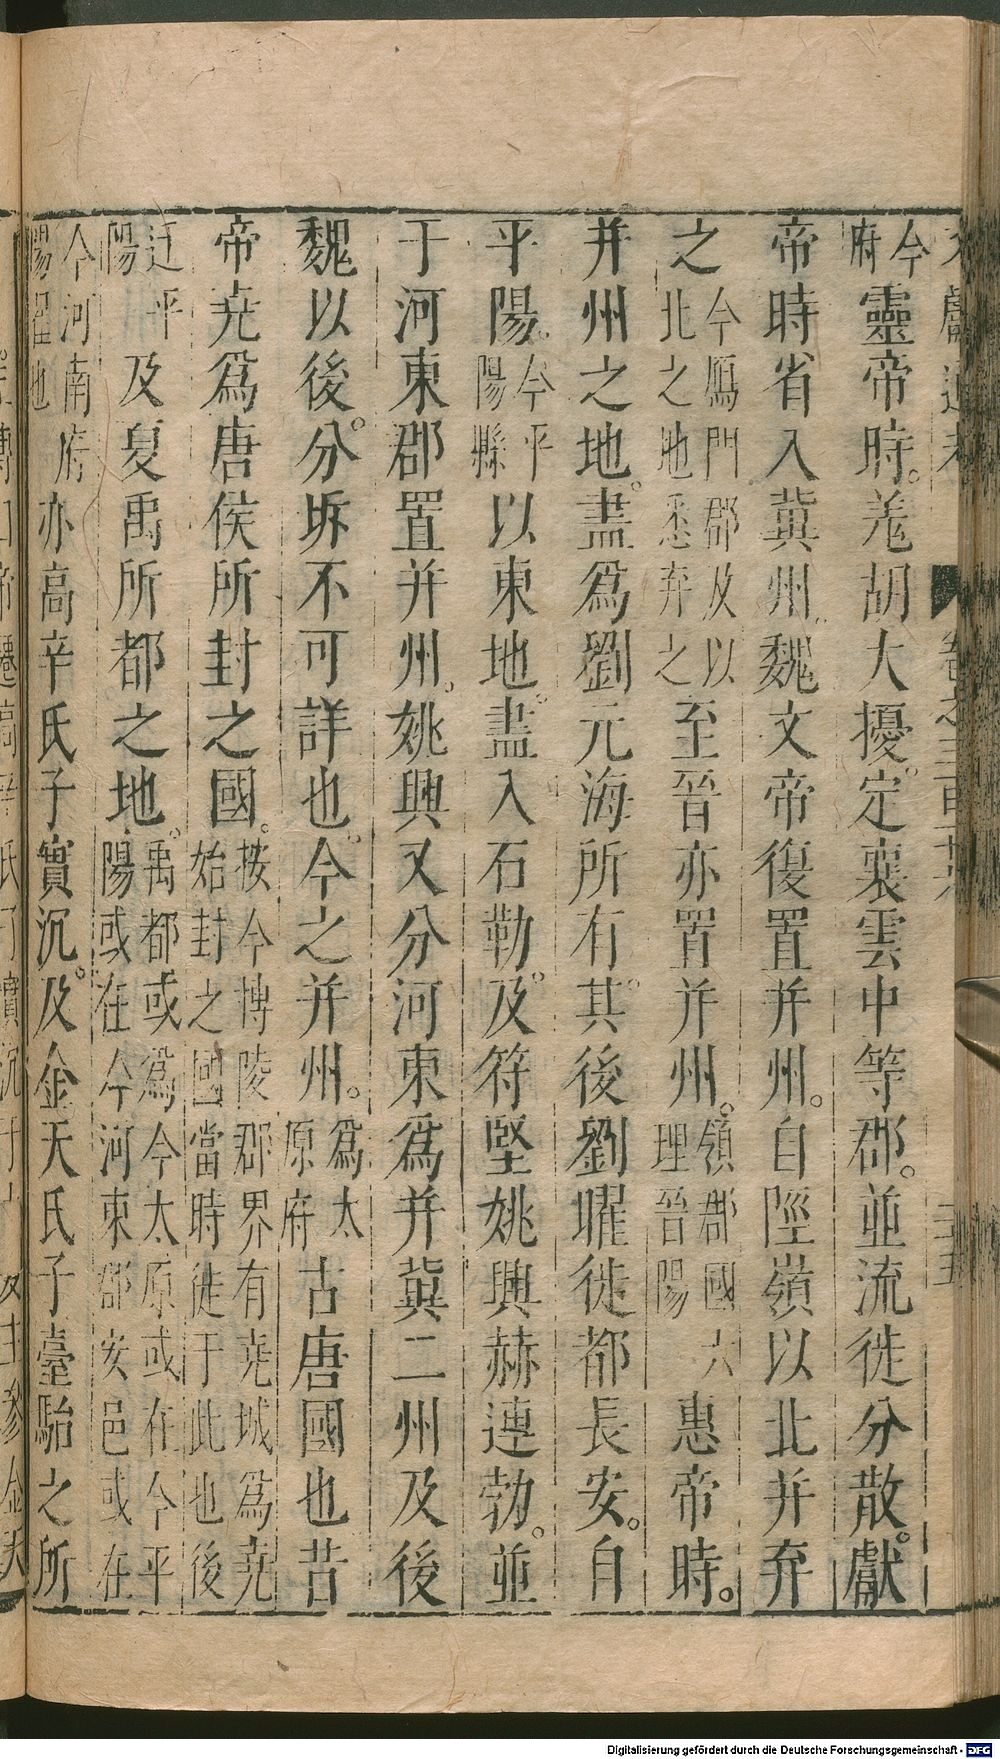 今府靈帝時。羗胡大擾。定襄雲中等郡。並流徙分散。獻
帝時省入冀州。魏文帝復置并州。自陘嶺以北并弃
之今鴈門郡及以北之地悉弃之至晉亦置并州。領郡國六理晉陽惠帝時。
并州之地。盡爲劉元海所有。其後劉曜徙都長安。自
平陽。今平陽縣以東地。盡入石勒。及符堅姚興赫連勃。並
于河東郡置并州。姚興又分河東爲并冀二州及後
魏以後。分坼不可詳也。今之并州。爲太原府古唐國也昔
帝堯爲唐侯所封之國。按今博陵郡界有堯城爲堯始封之國當時徒于此也後
迁平陽及夏禹所都之地。禹都或爲今太原或在今平陽或在今河東郡安邑或在
今河南府陽翟地亦高辛氏子實沉。及金天氏子臺駘之所
Digitalisierung gefördert durch die Deutsche Forschungsgemeinschaft - DFG